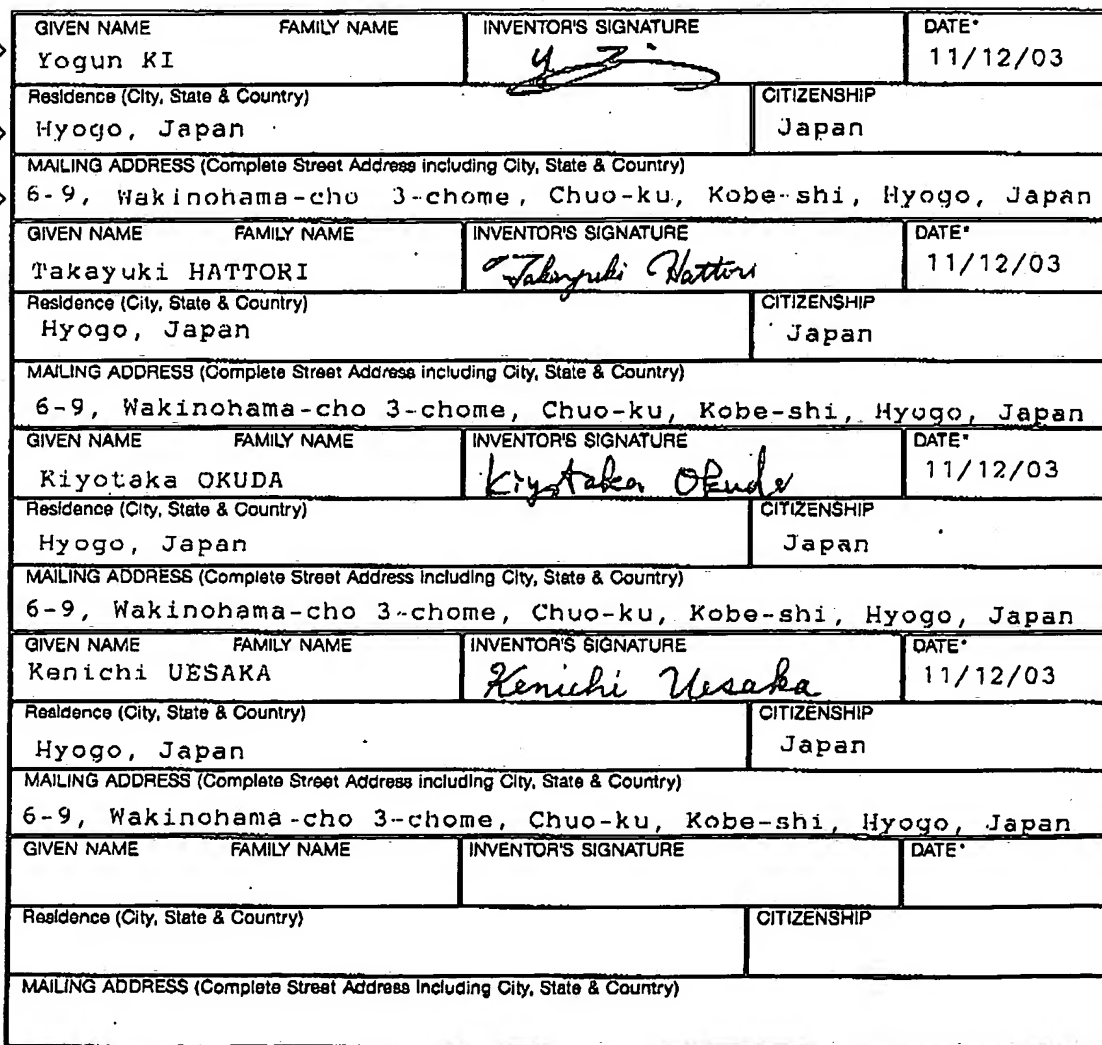 GIVEN NAME FAMILY NAME INVENTOR'S SIGNATURE DATE*
Yogun KI 11/12/03
Residence (City, State & Country) CITIZENSHIP
Hyogo, Japan Japan
MAILING ADDRESS (Complete Street Address including City, State & Country)
6-9, Wakinohama-cho 3-chome, Chuo-ku, Kobe-shi, Hyogo, Japan
GIVEN NAME FAMILY NAME INVENTOR'S SIGNATURE DATE*
Takayuki HATTORI Takayuki Hattori 11/12/03
Residence (City, State & Country) CITIZENSHIP
Hyogo, Japan Japan
MAILING ADDRESS (Complete Street Address including City, State & Country)
6-9, Wakinohama-cho 3-chome, Chuo-ku, Kobe-shi, Hyogo, Japan
GIVEN NAME FAMILY NAME INVENTOR'S SIGNATURE DATE*
Kiyotaka OKUDA Kiyotaka Okuda 11/12/03
Residence (City, State & Country) CITIZENSHIP
Hyogo, Japan Japan
MAILING ADDRESS (Complete Street Address including City, State & Country)
6-9, Wakinohama-cho 3-chome, Chuo-ku, Kobe-shi, Hyogo, Japan
GIVEN NAME FAMILY NAME INVENTOR'S SIGNATURE DATE*
Kenichi UESAKA Kenichi Uesaka 11/12/03
Residence (City, State & Country) CITIZENSHIP
Hyogo, Japan Japan
MAILING ADDRESS (Complete Street Address including City, State & Country)
6-9, Wakinohama-cho 3-chome, Chuo-ku, Kobe-shi, Hyogo, Japan
GIVEN NAME FAMILY NAME INVENTOR'S SIGNATURE DATE*
Residence (City, State & Country) CITIZENSHIP
MAILING ADDRESS (Complete Street Address including City, State & Country)